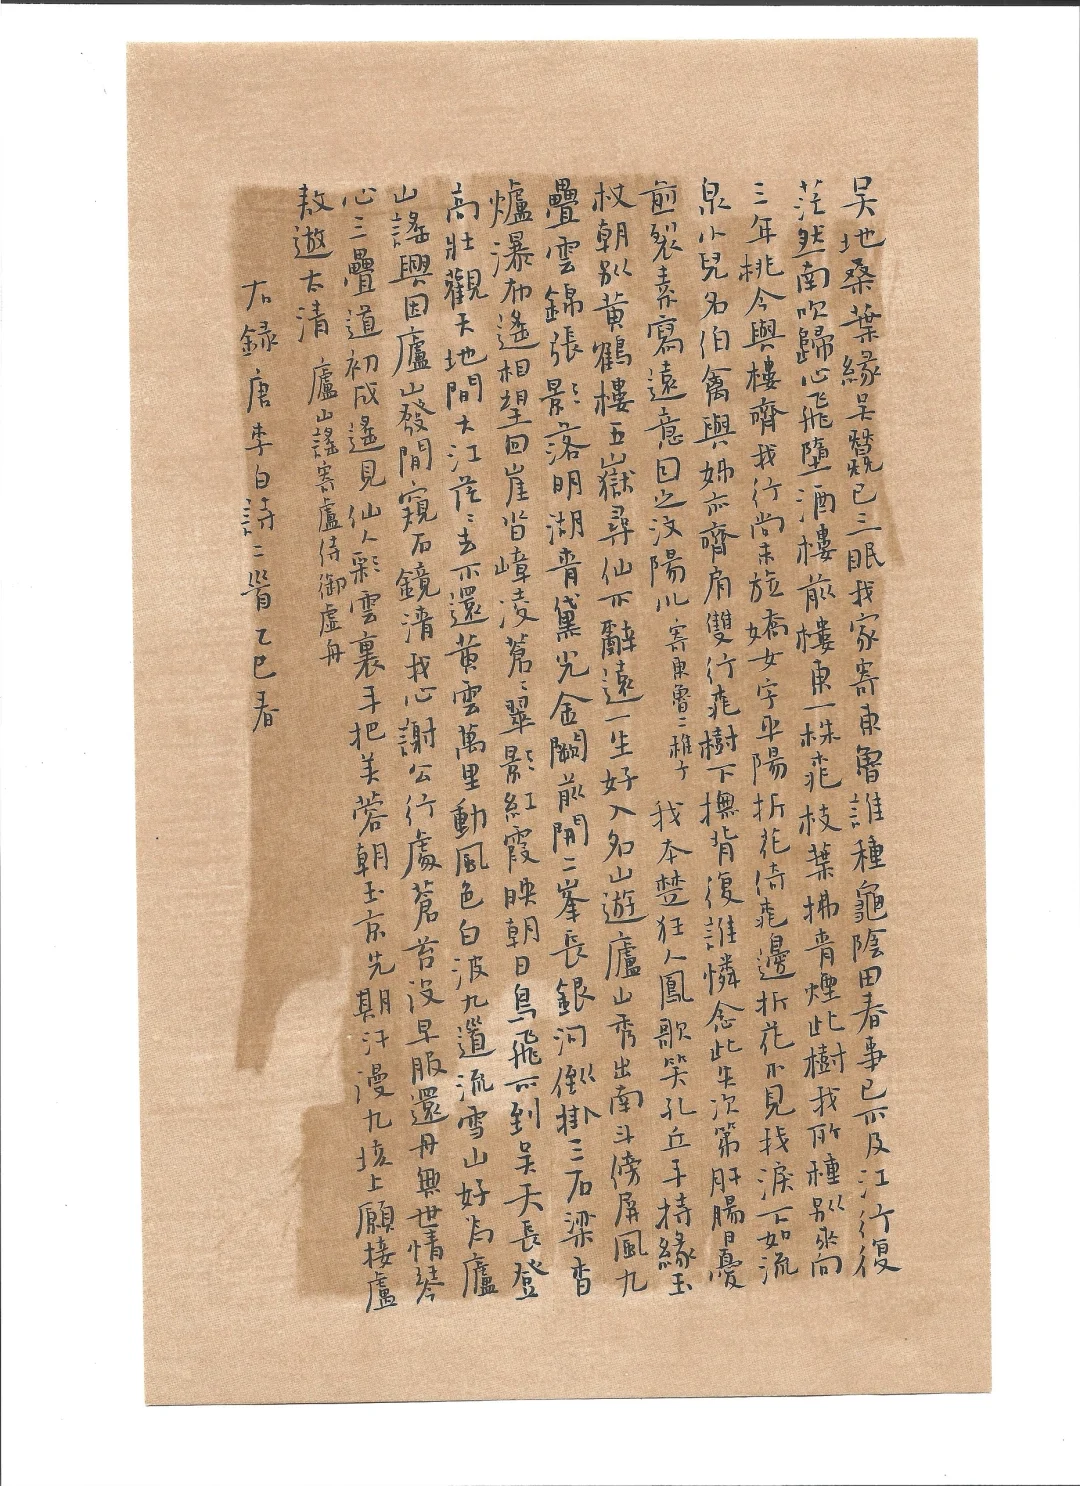 吳地桑葉緣吳蠶已三眠我家寄東魯誰種龜陰田春事已不及江行復
茫然南吹歸心飛墮酒樓前樓東一株桃枝葉拂青煙此樹我所種別來向
三年桃今與樓齊我行尚未旋嬌女字平陽折花倚桃邊折花不見我淚下如流
泉小兒名伯禽與姊亦齊肩雙行桃樹下撫背復誰憐念此失次第肝腸日憂
煎裂素寫遠意因之汶陽川 寄東魯二稚子 我本楚狂人鳳歌笑孔丘手持緣玉
杖朝別黃鶴樓五嶽尋仙不辭遠一生好入名山遊廬山秀出南斗傍屏風九
疊雲錦張影落明湖青黛光金闕前開二峯長銀河倒掛三石梁香
爐瀑布遙相望回崖沓嶂凌蒼〻翠影紅霞映朝日鳥飛不到吳天長登
高壯觀天地間大江茫〻去不還黃雲萬里動風色白波九道流雪山好為廬
山謠興因廬山發閒窺石鏡清我心謝公行處蒼苔沒早服還丹無世情琴
心三疊道初成遙見仙人彩雲裏手把芙蓉朝玉京先期汗漫九垓上願接盧
敖遊太清 廬山謠寄盧侍御虛舟
右錄唐李白詩二首乙巳春